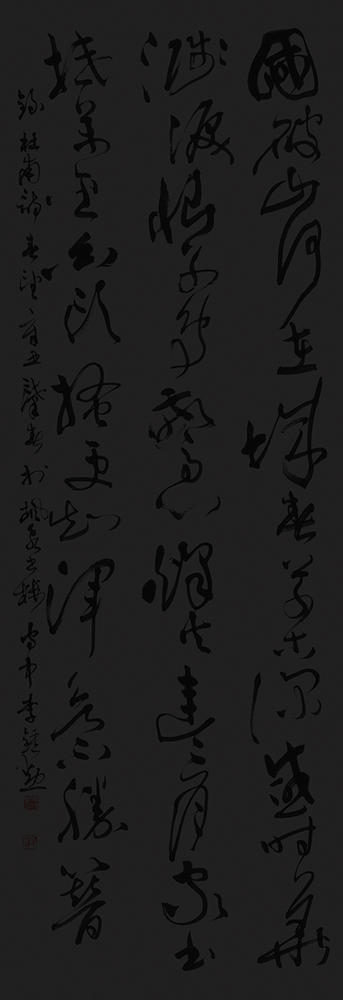 國破山河在城春草木深感時花
濺淚恨別鳥驚心烽火連三月家書
抵萬金白頭搔更短渾欲不勝簪
錄杜甫詩春望辛丑肇春於楓泉書樓李